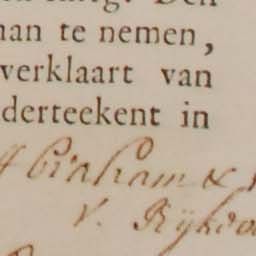 nan te nemen,
verklaart van
derteekent in
Abraham &
v. Rijkdo